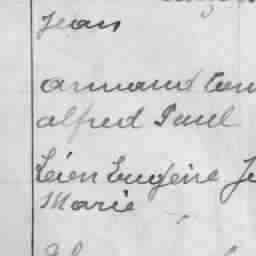 Jean
Armand
Alfred Paul
Léon Eugène
Marie